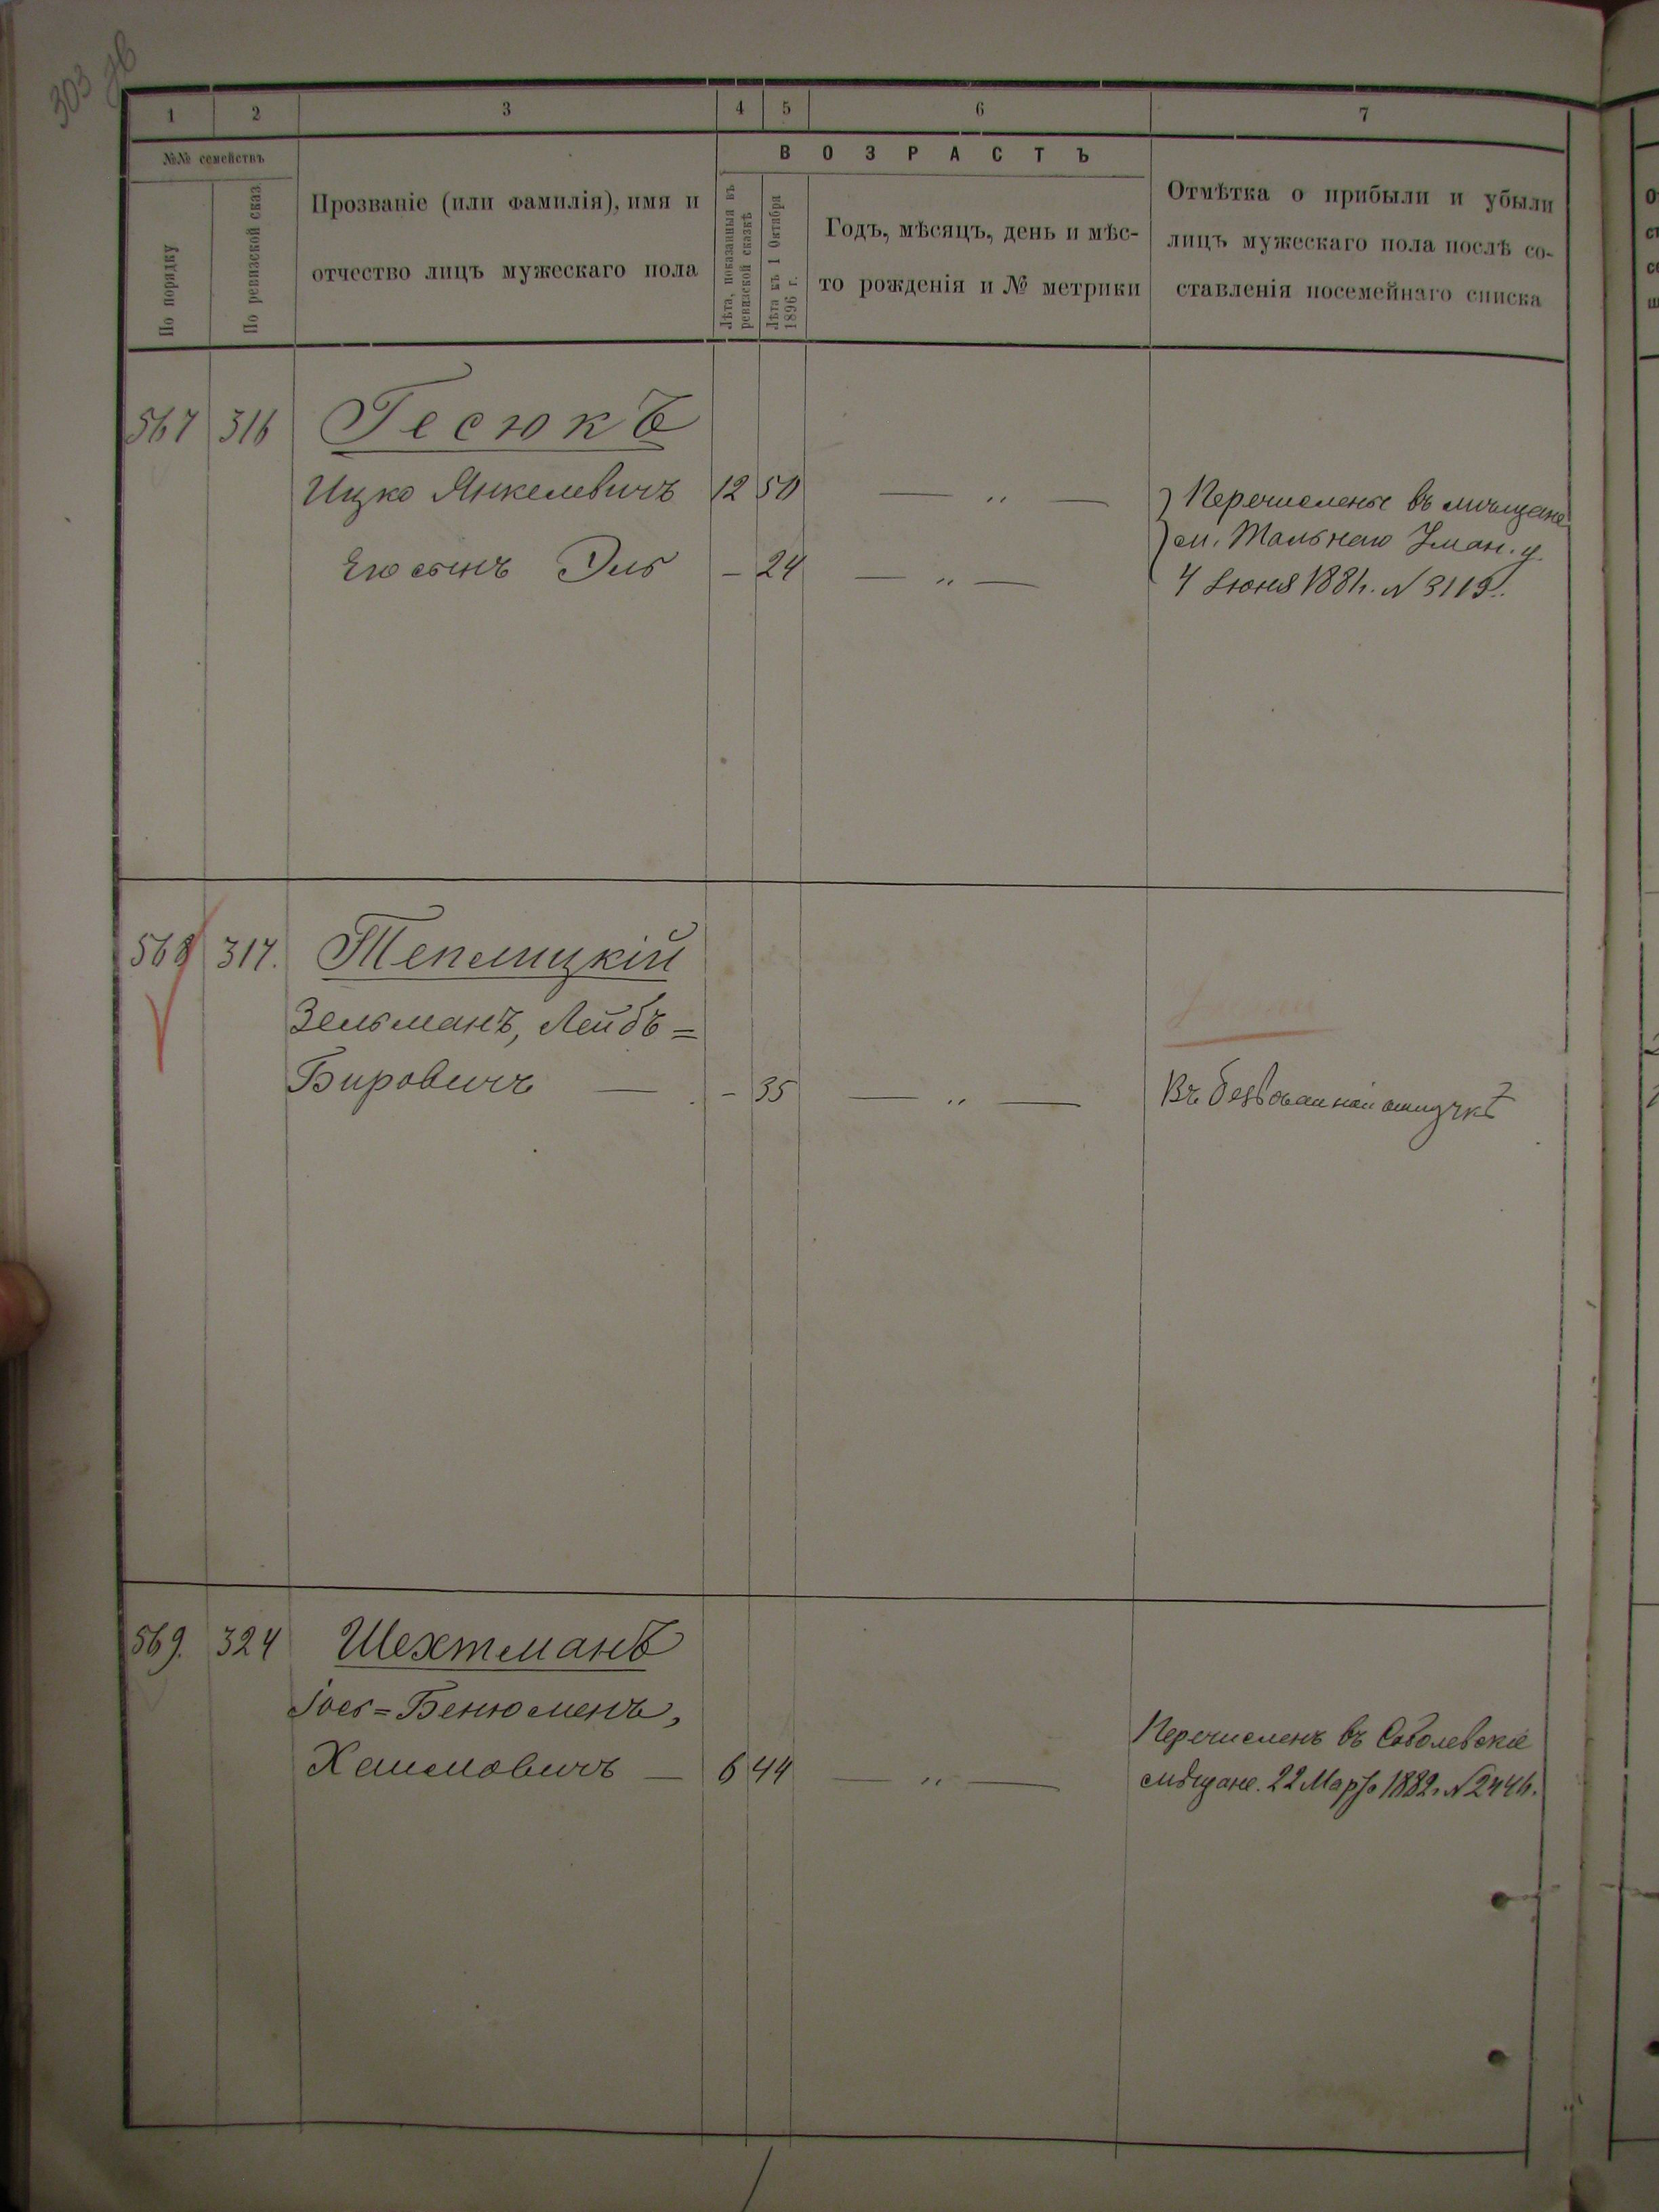 303 зв
1 2 3 4 5 6 7
№№ семействъ
ВОЗРАСТЪ
По порядку
По ревизской сказ
Прозваніе (или фамилія), имя и
отчество лицъ мужескаго пола
Лѣта, показанныя въ
ревизской сказкѣ
Лѣта къ 1 Октября
1896 г.
Годъ, мѣсяцъ, день и мѣс-
то рожденія и № метрики
Отмѣтка о прибыли и убыли
лицъ мужескаго пола послѣ со-
ставленія посемейнаго списка
567 316 Гесюкъ
Ицко Янкелевичъ 12 50 — „ —
Его сынъ Эль – 24 — „ —
Перечислены въ мѣщане
м. Тальнаго Уман. у.
4 Іюня 1881г. №3119.
568 317. Теплицкій
Зельманъ, Лейбъ=
Бировичъ — – 35 — „ —
Въ безвѣстной отлучкѣ
569. 324 Шехтманъ
Іось=Бенюменъ,
Хаимовичъ — 6 44 — „ —
Перечисленъ въ Соболевскіе
мѣщане. 22 Марта 1882г. №2446.